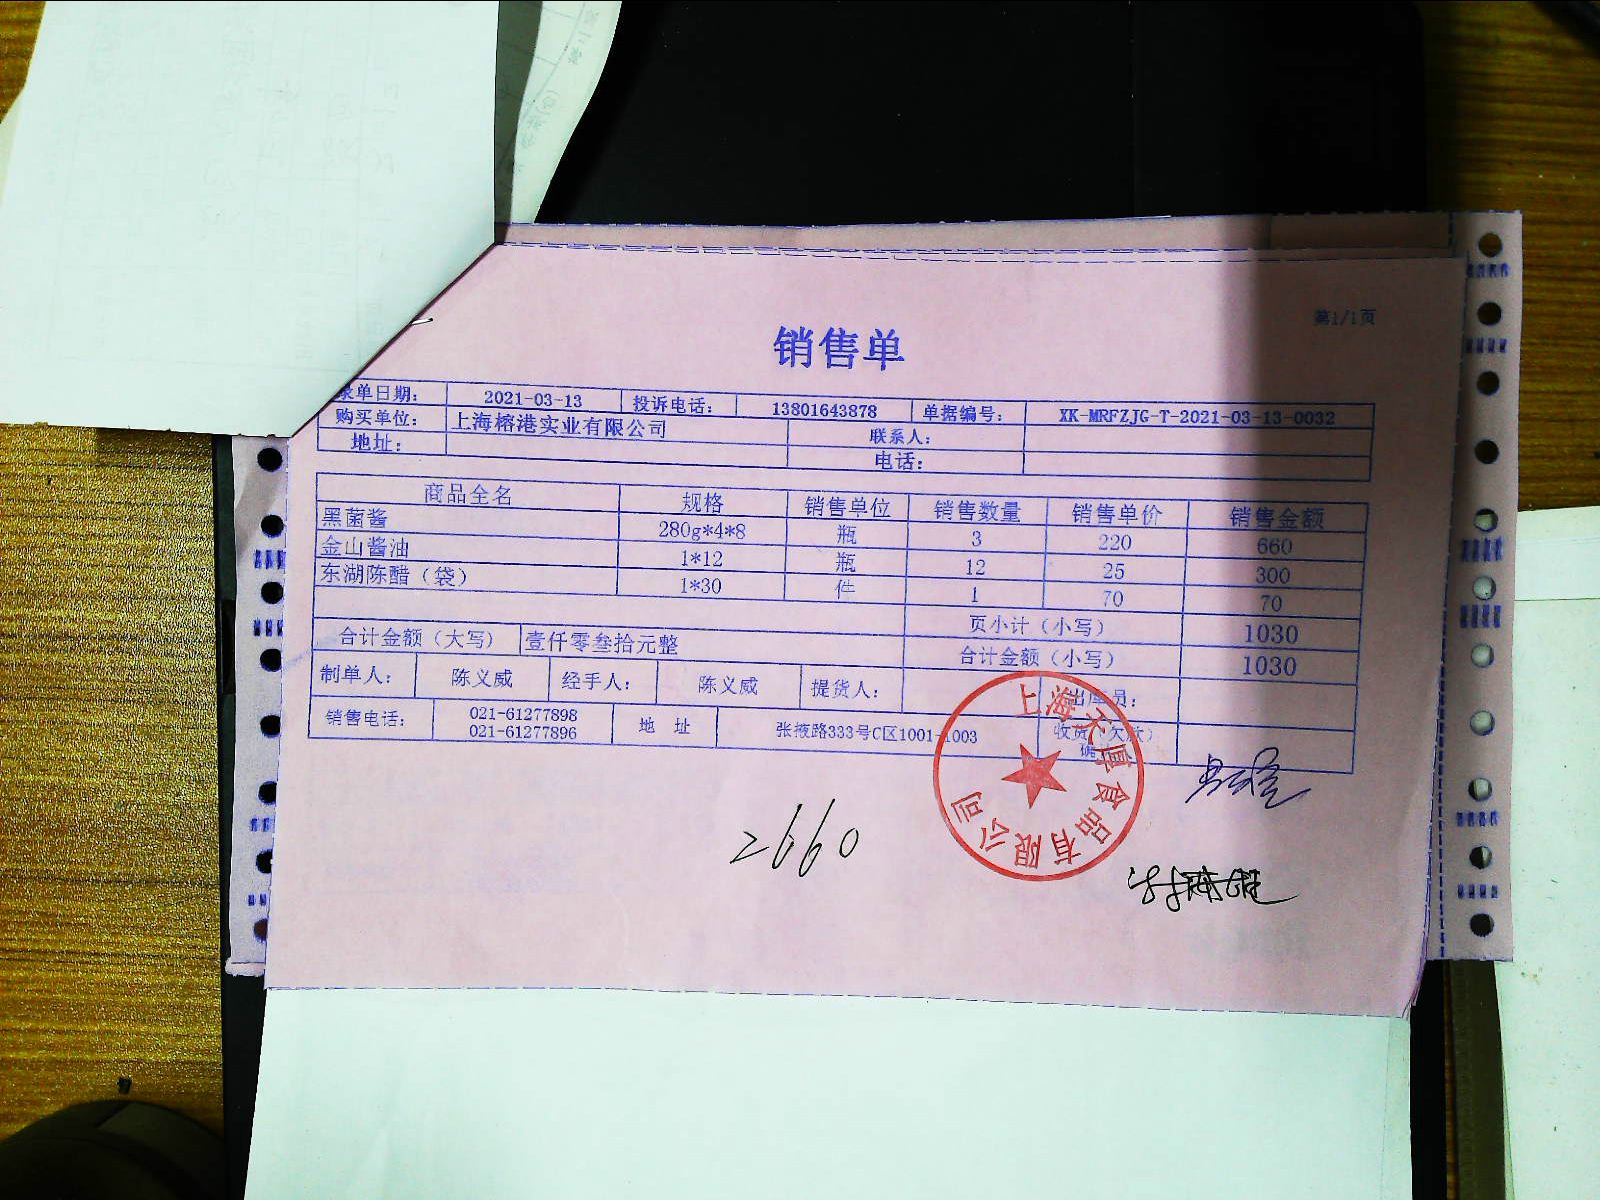 第1/1页
销售单
录单日期: 2021-03-13 投诉电话: 13801643878 单据编号: XK-MRFZJG-T-2021-03-13-0032
购买单位: 上海榕港实业有限公司 联系人:
地址: 电话:
商品全名 规格 销售单位 销售数量 销售单价 销售金额
黑菌酱 280g*4*8 瓶 3 220 660
金山酱油 1*12 瓶 12 25 300
东湖陈醋（袋） 1*30 件 1 70 70
页小计（小写） 1030
合计金额（大写） 壹仟零叁拾元整 合计金额（小写） 1030
制单人: 陈义威 经手人: 陈义威 提货人: 出库员:
销售电话: 021-61277898 地 址 张掖路333号C区1001-1003 收货（欠款）
021-61277896 确
上海天厚食品有限公司
2660